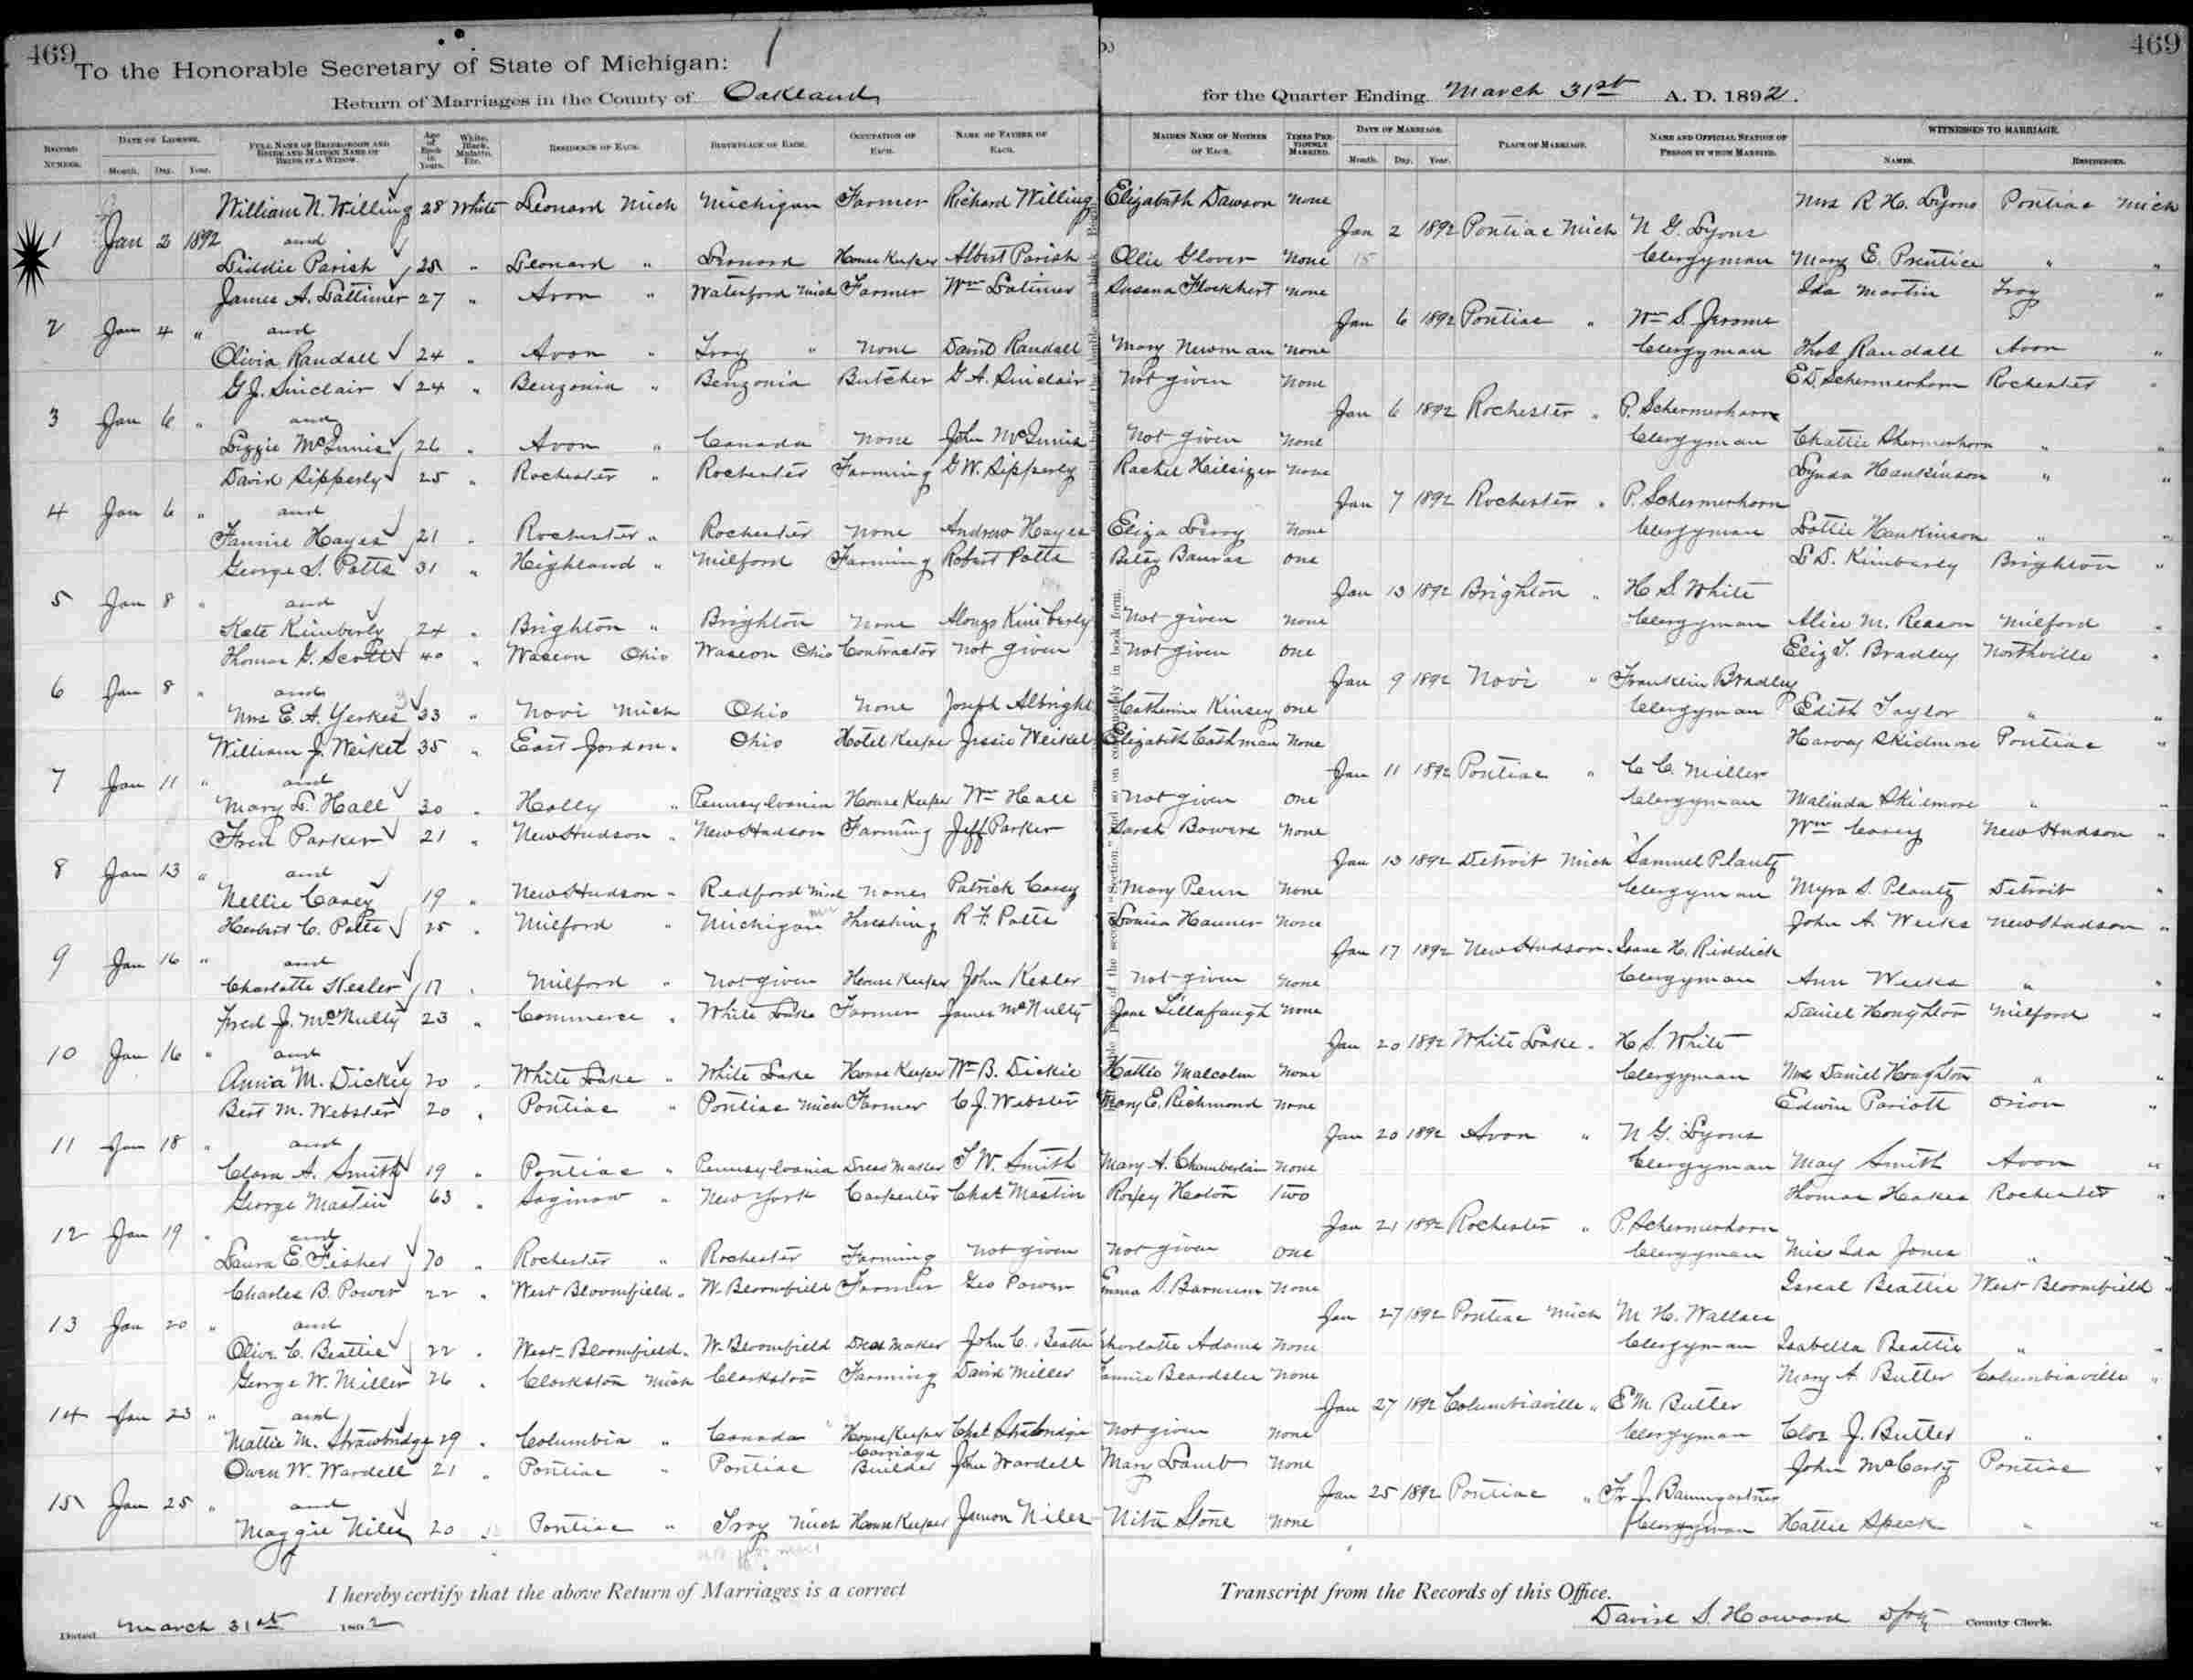 469 469
To the Honorable Secretary of State of Michigan:
Return of Marriages in the County of Oakland for the Quarter Ending March 31st A. D. 1892.
RECORD NUMBER. DATE OF LICENSE. Month. Day. Year. FULL NAME OF BRIDEGROOM AND BRIDE AND MAIDEN NAME OF BRIDE IF A WIDOW. Age of Each in Years. White, Black, Mulatto, Etc. RESIDENCE OF EACH. BIRTHPLACE OF EACH. OCCUPATION OF EACH. NAME OF FATHER OF EACH. MAIDEN NAME OF MOTHER OF EACH. TIMES PREVIOUSLY MARRIED. DATE OF MARRIAGE. Month. Day. Year. PLACE OF MARRIAGE. NAME AND OFFICIAL STATION OF PERSON BY WHOM MARRIED. WITNESSES TO MARRIAGE. NAMES. RESIDENCES.
William N. Willing 28 White Leonard Mich Michigan Farmer Richard Willing Elizabeth Dawson None Mrs R H. Lyons Pontiac Mich
1 Jan 2 1892 and Jan 2 1892 Pontiac Mich N G. Lyons
Liddie Parish 25 " Leonard " Leonard House Keeper Albert Parish Ollie Glover None 15 Clergyman Mary E. Prentice " "
James A. Lattimer 27 " Avon " Waterford Mich Farmer Wm Latimer Susana None Ida Martin Troy "
2 Jan 4 " and Jan 6 1892 Pontiac " Wm S. Jerome
Olivia Randall 24 " Avon " Troy " None David Randall Mary Newman None Clergyman Thos Randall Avon "
G J. Sinclair 24 " Benzonia " Benzonia Butcher G A. Sinclair Not given None E D. Schermerhorn Rochester "
3 Jan 6 " and Jan 6 1892 Rochester " P. Schermerhorn
Lizzie McInnis 26 " Avon " Canada None John McInnis Not given None Clergyman Chattie Shermerhorn " "
David Sipperly 25 " Rochester " Rochester Farming G W. Sipperly Rachel None Lynda Hankinson " "
4 Jan 6 " and Jan 7 1892 Rochester " P. Schermerhorn
Fannie Hayes 21 " Rochester " Rochester None Andrew Hayes Eliza None Clergyman Lottie Hankinson " "
George S. Potts 31 " Highland " Milford Farming Robert Potts Betsy one L D. Kimberly Brighton "
5 Jan 8 " and Jan 13 1892 Brighton " H S. White
Kate Kimberly 24 " Brighton " Brighton None Alonzo Kimberly Not given None Clergyman Alice M. Reason Milford "
Thomas G. Scott 40 " Waseon Ohio Waseon Ohio Contractor Not given Not given one Eliz T. Bradley Northville "
6 Jan 8 " and Jan 9 1892 Novi " Franklin Bradley
Mrs E. A. Yerkes 33 " Novi Mich Ohio None Joseph Albright Catherine Kinsey one Clergyman Edith Taylor " "
William J. Weikel 35 " East Jordon " Ohio Hotel Keeper Jessie Weikel Elizabeth Cathman None Harvey Skidmore Pontiac "
7 Jan 11 " and Jan 11 1892 Pontiac " C C. Miller
Mary L. Hall 30 " Holly " Pennsylvania House Keeper Wm Hall Not given one Clergyman Malinda Skidmore " "
Fred Parker 21 " New Hudson " New Hudson Farming Jeff Parker Sarah Bowers None Wm Casey New Hudson "
8 Jan 13 " and Jan 13 1892 Detroit Mich Samuel Plantz
Nellie Casey 19 " New Hudson " Redford Mich None Patrick Casey Mary Penn None Clergyman Myra S. Plantz Detroit "
Herbert C. Potts 25 " Milford " Michigan Threshing R F. Potts Louisa None John A. Weeks New Hudson "
9 Jan 16 " and Jan 17 1892 New Hudson " Isaac H. Riddick
Charlotte Kesler 17 " Milford " Not given House Keeper John Kesler Not given None Clergyman Ann Weeks " "
Fred J. McNulty 23 " Commerce " White Lake Farmer James McNulty Jane Lillafaugh None Daniel Houghton Milford "
10 Jan 16 " and Jan 20 1892 White Lake " H S. White
Anna M. Dickey 20 " White Lake " White Lake House Keeper Wm B. Dickie Hattie Malcolm None Clergyman Mrs Daniel Houghton " "
Bert M. Webster 20 " Pontiac " Pontiac Mich Farmer C J. Webster Mary E. Richmond None Edwin Pariott Orion "
11 Jan 18 " and Jan 20 1892 Avon " N G. Lyons
Clara A. Smith 19 " Pontiac " Pennsylvania Dress Maker T W. Smith Mary A. Chamberlain None Clergyman May Smith Avon "
George Mastin 63 " Saginaw " New York Carpenter Chas Mastin Roxey Heaton Two Thomas Rochester "
12 Jan 19 " and Jan 21 1892 Rochester " P. Schermerhorn
Laura E. Fisher 70 " Rochester " Rochester Farming Not given Not given one Clergyman Miss Ida Jones " "
Charles B. Power 22 " West Bloomfield " W. Bloomfield Farmer Geo Power Emma S. Barnum None Isreal Beattie West Bloomfield "
13 Jan 20 " and Jan 27 1892 Pontiac Mich M H. Wallace
Olive C. Beattie 22 " West Bloomfield " W. Bloomfield Dress Maker John C. Beattie Charlotte Adams None Clergyman Isabella Beattie " "
George W. Miller 26 " Clarkston Mich Clarkston Farming David Miller Fannie Beardslee None Mary A. Butler Columbiaville "
14 Jan 23 " and Jan 27 1892 Columbiaville " E M Butler
Mattie M. Strawbridge 29 " Columbia " Canada " House Keeper Chas Not given None Clergyman Cloe J. Butler " "
Owen W. Wardell 21 " Pontiac " Pontiac Carriage Builder John Wardell Mary Lamb None John McCarty Pontiac "
15 Jan 25 " and Jan 25 1892 Pontiac " Fr J. Baumgartner
Maggie Niles 20 Pontiac " Troy Mich House Keeper Junon Niles Nita Stone None Clergyman Hattie Speck " "
I hereby certify that the above Return of Marriages is a correct Transcript from the Records of this Office.
Dated March 31st 1892 David S. Howard Dpty County Clerk.